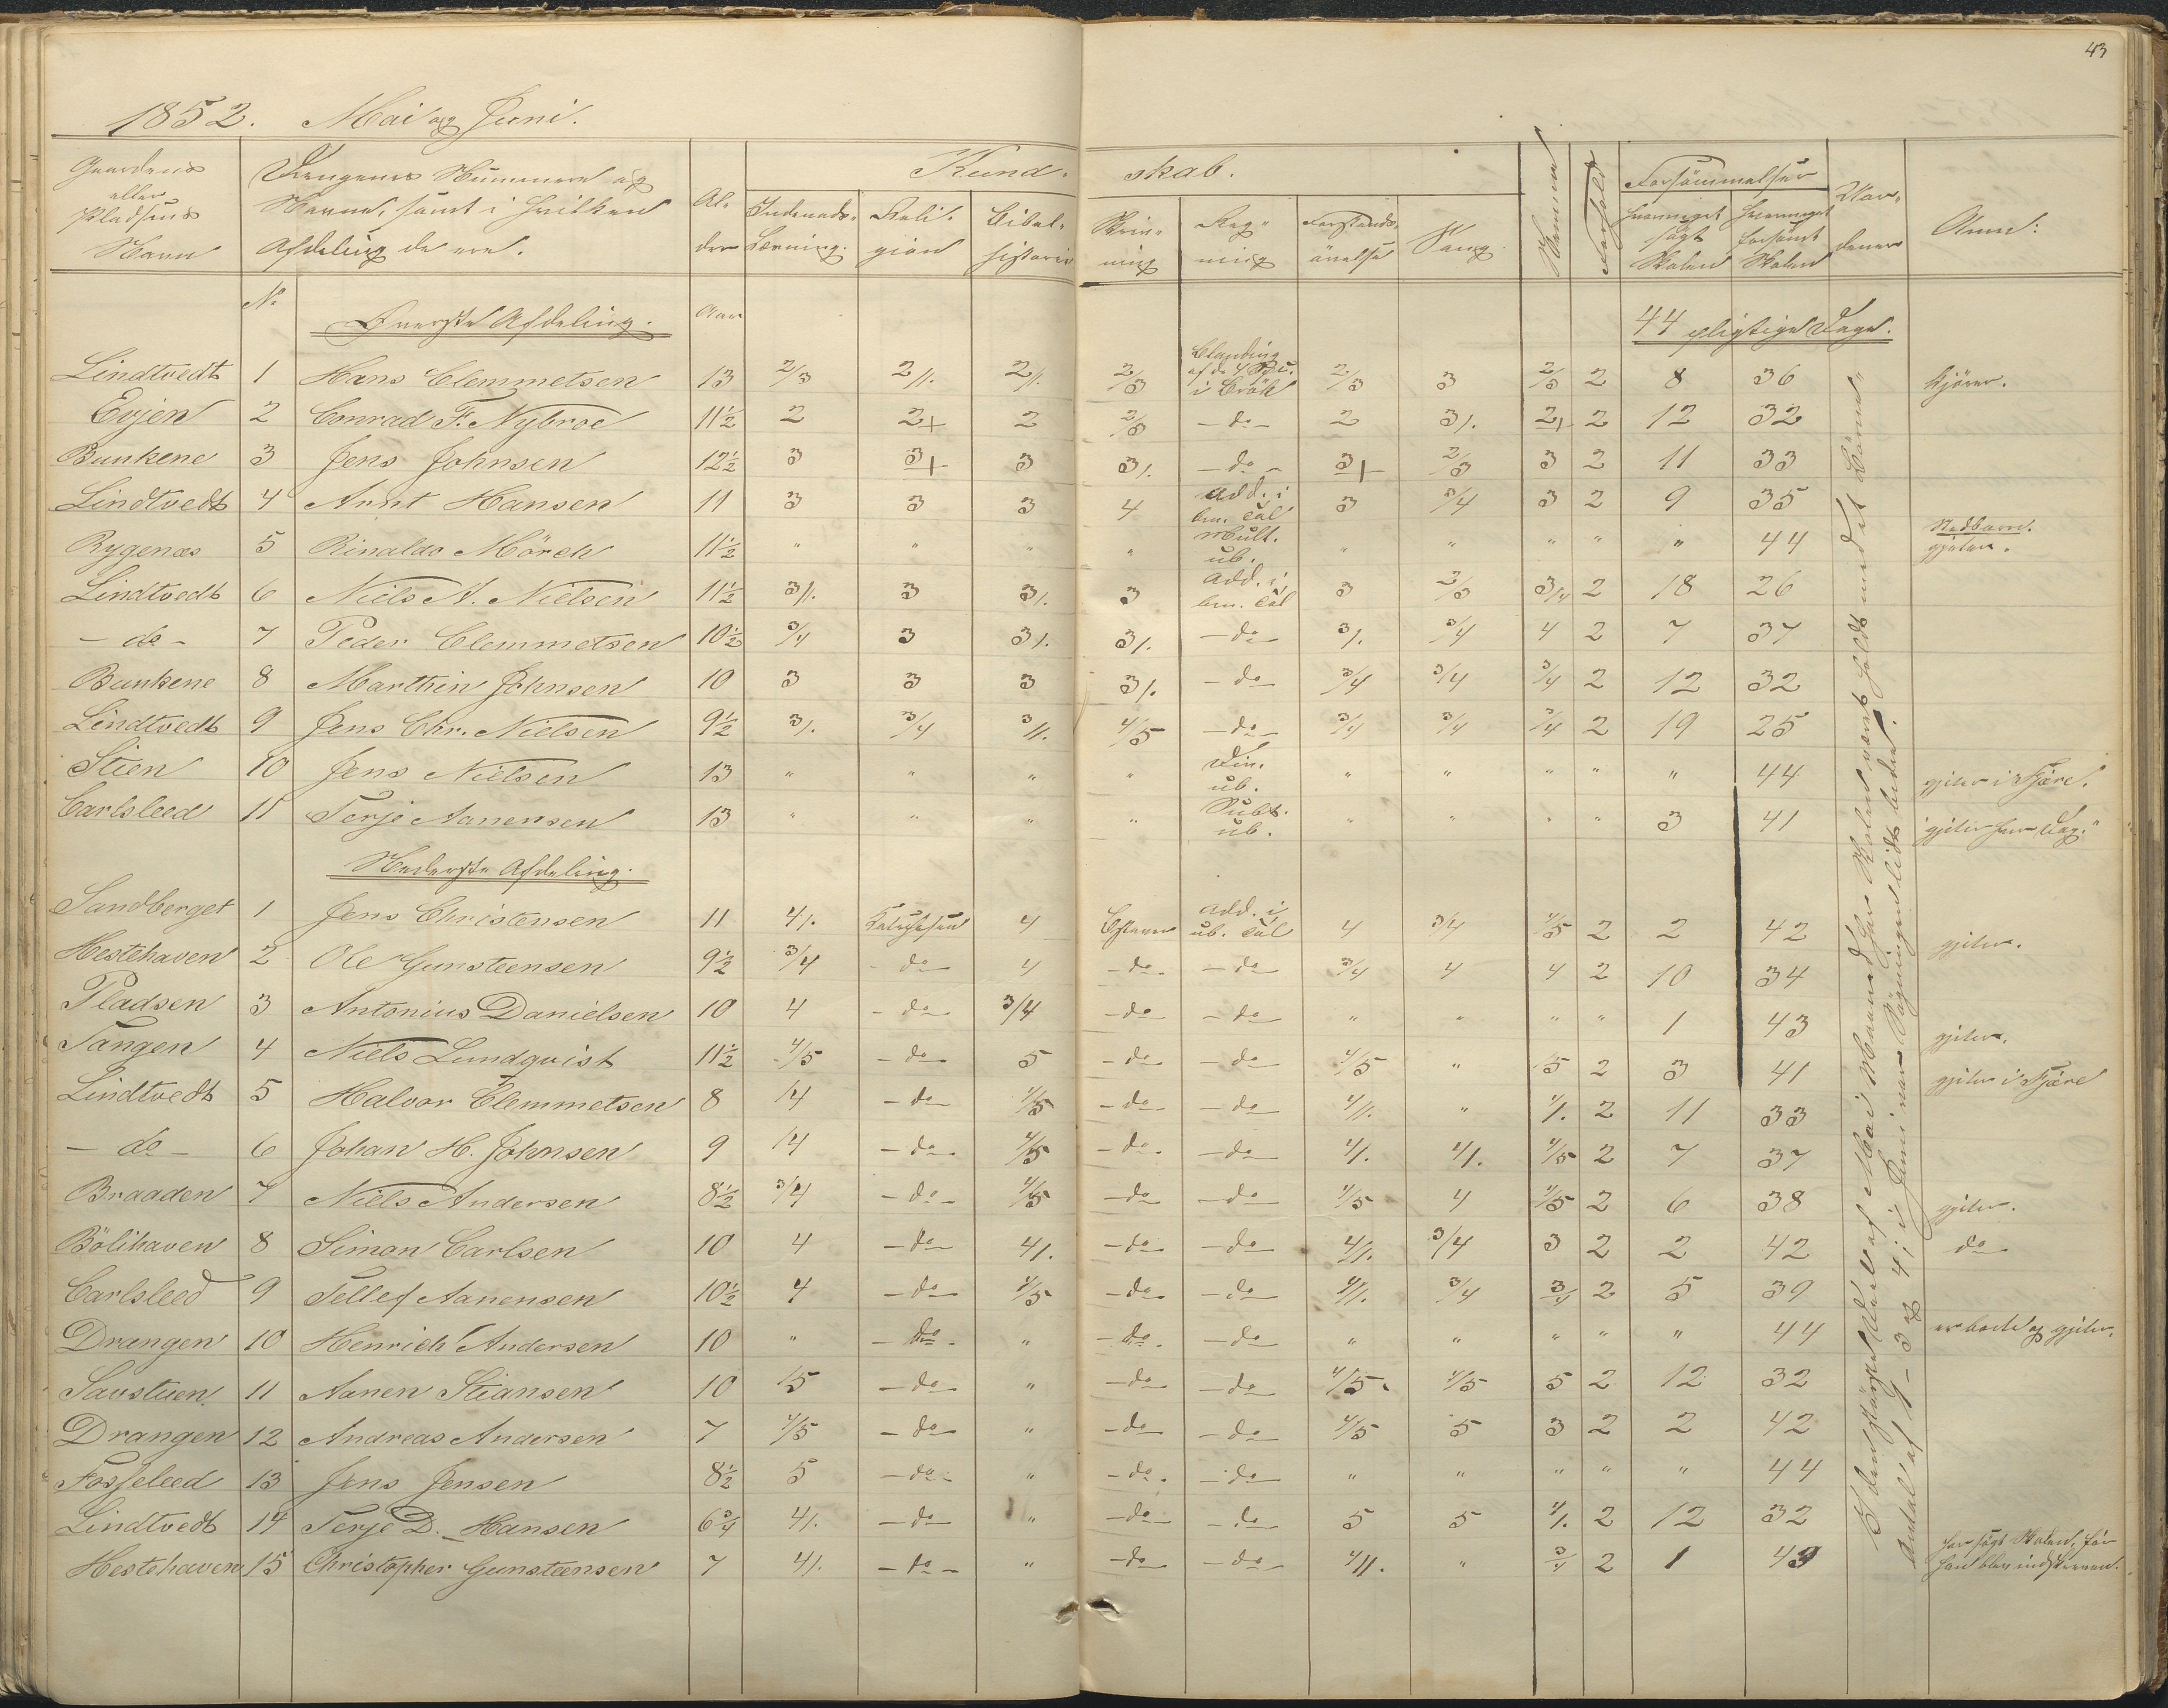 43
1852. Mai og Juni.
Gaardens eller Pladsens Navn | Drengenes Nummere og Navne, samt i hvilken Afdeling de ere. | Alder | Kundskab. | Forsømmelser
Indenads-Læsning. | Religion | Bibelhistorie | Skrivning | Regning | Forstandsøvelse | Sang | Nemme | Forhold | hvormeget søgt Skolen | hvormeget forsømt Skolen | Anm:
No Øverste Afdeling. Aar 44 pligtige Dage.
Lindtvedt 1 Hans Clemmetsen 13 2/3 2//. 2//. 2/3 Blanding af de 4 Sp. i Brök 2/3 3 2/3 2 8 36 kjører.
Evjen 2 Conrad F. Nybroe 11½ 2 2+ 2 2/3 -do- 2 3/. 2+ 2 12 32
Bunkene 3 Jens Johnsen 12½ 3 3+ 3 3/. -do- 3+ 2/3 3 2 11 33
Lindtvedt 4 Arnt Hansen 11 3 3 3 4 Add. i bn. Tal 3 3/4 3 2 9 35
Rygenæs 5 Rinaldo Mörch 11½ " " " " Mult. ub. " " " " " 44 Stedbarn. gjeter.
Lindtvedt 6 Niels A. Nielsen 11½ 3//. 3 3/. 3 Add. i bn. Tal 3 2/3 3/4 2 18 26
-do- 7 Peder Clemmetsen 10½ 3/4 3 3/. 3/. -do- 3/. 3/4 4 2 7 37
Bunkene 8 Marthin Johnsen 10 3 3 3 3/. -do- 3/4 3/4 3/4 2 12 32
Lindtvedt 9 Jens Chr. Nielsen 9½ 3/. 3/4 3//. 4/5 -do- 3/4 3/4 3/4 2 19 25
Stien 10 Jens Nielsen 13 " " " " Div. ub. " " " " " 44 gjeter i Fjære.
Carlsleed 11 Terje Aanensen 13 " " " " Subt. ub. " " " " 3 41 gjeter hver Dag."
Nederste Afdeling.
Sandberget 1 Jens Christensen 11 4/. 4 Bogstaver Add. i ub. Tal 4 3/4 4/5 2 2 42 gjeter.
Hestehaven 2 Ole Gunsteensen 9½ 3/4 -do- 4 -do- -do- 3/4 4 4 2 10 34
Pladsen 3 Antonius Danielsen 10 4 -do- 3/4 -do- -do- " " " " 1 43 gjeter.
Tangen 4 Niels Lundqvist 11½ 4/5 -do- 5 -do- -do- 4/5 " 5 2 3 41 gjeter i Fjære
Lindtvedt 5 Halvor Clemmetsen 8 4 -do- 4/5 -do- -do- 4//. " 4/. 2 11 33
-do- 6 Johan H. Johnsen 9 4 -do- 4/5 -do- -do- 4/. 4/. 4/5 2 7 37
Braaden 7 Niels Andersen 8½ 3/4 -do- 4/5 -do- -do- 4/5 4 4/5 2 6 38 gjeter.
Bölihaven 8 Simon Carlsen 10 4 -do- 4/. -do- -do- 4/. 3/4 3 2 2 42 do
Carlsleed 9 Tellef Aanensen 10½ 4 -do- 4/5 -do- -do- 4//. 3/4 3/4 2 5 39
Drangen 10 Henrich Andersen 10 " -do- " -do- -do- " " " " " 44 er borte og gjeter.
Savstuen 11 Aanen Stiansen 10 5 -do- " -do- -do- 4/5 4/5 5 2 12 32
Drangen 12 Andreas Andersen 7 4/5 -do- " -do- -do- 4/5 5 3 2 2 42
Fosseleed 13 Jens Jensen 8½ 5 -do- " -do- -do- " " " " " 44
Lindtvedt 14 Terje D. Hansen 6¾ 4/. -do- " -do- -do- 5 5 4/. 2 12 32
Hestehaven 15 Christopher Gunsteensen 7 4/. -do- " -do- -do- 4//. " 3/4 2 1 43 har søgt Skolen, før han blev indskreven.
af Mai Maaned har Skolen været holdt med det
Antal af 9 - 3 og 4 i Juni